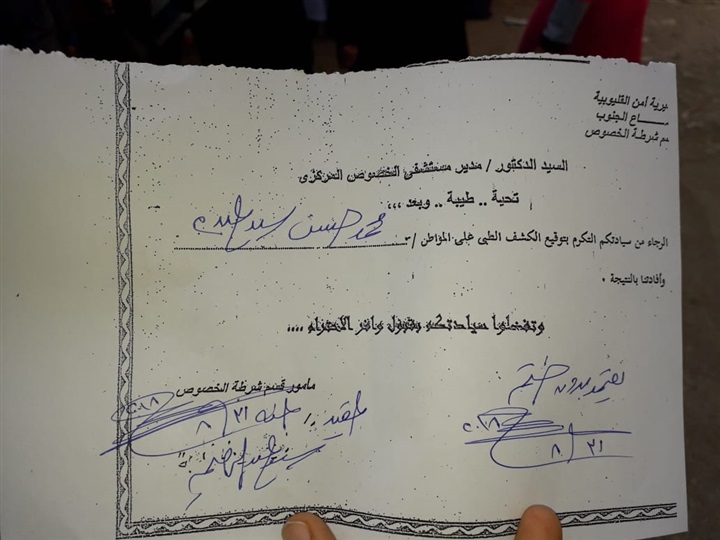 يرية أمن القليوبية
ـاع الجنوب
سم شرطة الخصوص
السيد الدكتور / مدير مستشفى الخصوص المركزى
تحية .. طيبة .. وبعد ,,,
الرجاء من سيادتكم التكرم بتوقيع الكشف الطبى على المواطن /
محمد حسن سيد
وأفادتنا بالنتيجة .
وتفضلوا سيادتكم بقبول وافر الاحترام ....
مأمور قسم شرطة الخصوص
يعتمد بدون ختم
٢٠١٨
٨ / ٢١
عقيد /
٢٠١٨
٨ / ٢١